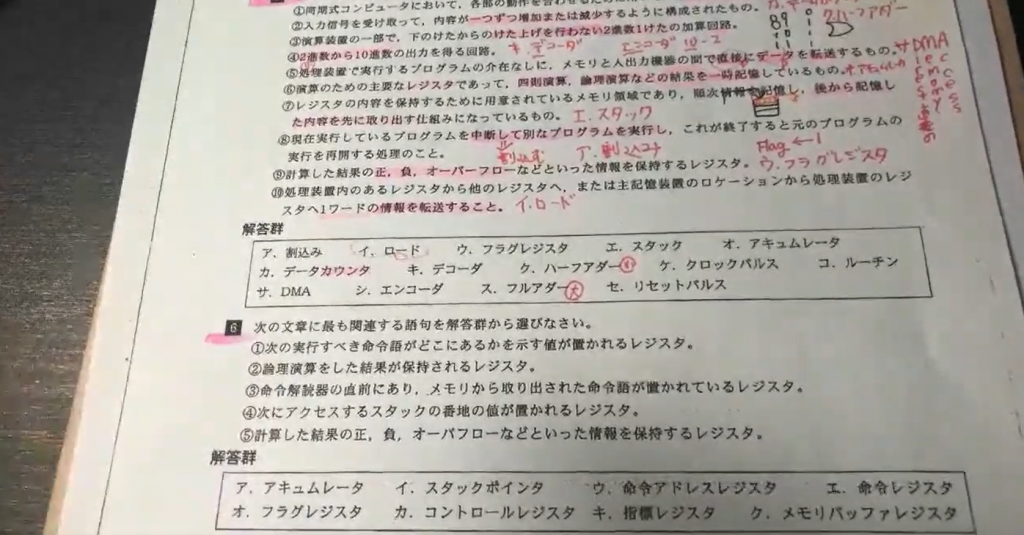 ①同期式コンピュータにおいて，各部の動作を合わせるため
②入力信号を受け取って，内容が一つずつ増加または減少するように構成されたもの。
ク.ハーフアダー
③演算装置の一部で，下のけたからのけた上げを行わない2進数1けたの加算回路。
④2進数から10進数の出力を得る回路。 キ.デコーダ エンコーダ 10-2
⑤処理装置で実行するプログラムの介在なしに，メモリと入出力機器の間で直接にデータを転送するもの。サ DMA
⑥演算のための主要なレジスタであって，四則演算，論理演算などの結果を一時記憶しているもの。
⑦レジスタの内容を保持するために用意されているメモリ領域であり，順次情報を記憶し，後から記憶し
た内容を先に取り出す仕組みになっているもの。 エ.スタック
⑧現在実行しているプログラムを中断して別なプログラムを実行し，これが終了すると元のプログラムの
実行を再開する処理のこと。 割込む ア.割込み
Flag ←1
⑨計算した結果の正，負，オーバーフローなどといった情報を保持するレジスタ。 ウ.フラグレジスタ
⑩処理装置内のあるレジスタから他のレジスタへ，または主記憶装置のロケーションから処理装置のレジ
スタへ1ワードの情報を転送すること。 イ.ロード
解答群
ア．割込み イ．ロード ウ．フラグレジスタ エ．スタック オ．アキュムレータ
カ．データカウンタ キ．デコーダ ク．ハーフアダー 小 ケ．クロックパルス コ．ルーチン
サ．DMA シ．エンコーダ ス．フルアダー 大 セ．リセットパルス
6 次の文章に最も関連する語句を解答群から選びなさい。
①次の実行すべき命令語がどこにあるかを示す値が置かれるレジスタ。
②論理演算をした結果が保持されるレジスタ。
③命令解読器の直前にあり，メモリから取り出された命令語が置かれているレジスタ。
④次にアクセスするスタックの番地の値が置かれるレジスタ。
⑤計算した結果の正，負，オーバフローなどといった情報を保持するレジスタ。
解答群
ア．アキュムレータ イ．スタックポインタ ウ．命令アドレスレジスタ エ．命令レジスタ
オ．フラグレジスタ カ．コントロールレジスタ キ．指標レジスタ ク．メモリバッファレジスタ